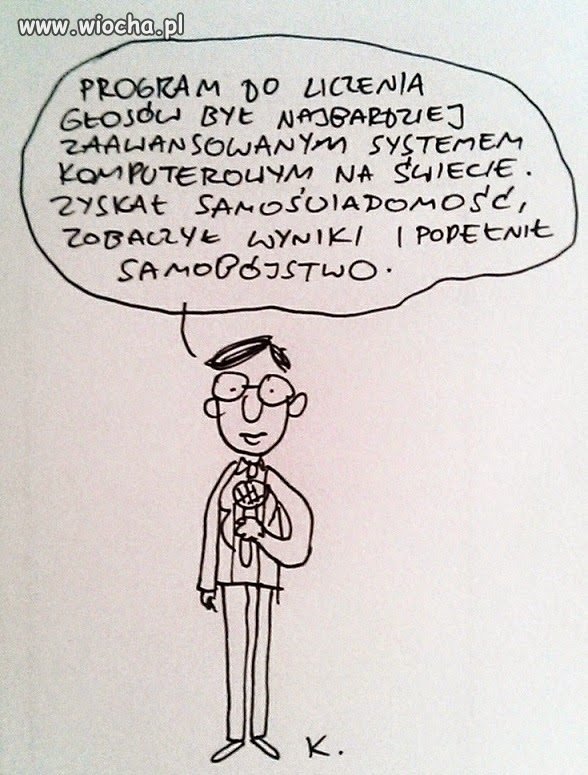 www.wiocha.pl
PROGRAM DO LICZENIA
GŁOSÓW BYŁ NAJBARDZIEJ
ZAAWANSOWANYM SYSTEMEM
KOMPUTEROWYM NA ŚWIECIE.
ZYSKAŁ SAMOŚWIADOMOŚĆ,
ZOBACZYŁ WYNIKI I POPEŁNIŁ
SAMOBÓJSTWO.
K.